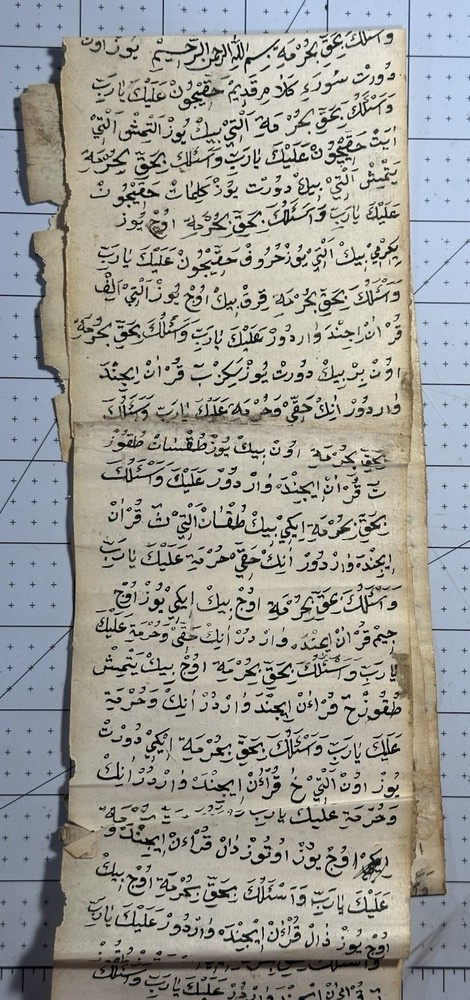 وَاَسْئَلُكَ بِحَقِّ بِحُرْمَةِ بِسْمِ اللّٰهِ الرَّحْمٰنِ الرَّحِيمِ يُوزْ اوُنْ
دُورْتْ سُورَءِ كَلَامِ قَدِيمْ حَقِيچُونْ عَلَيْكَ يَارَبِّ
وَاَسْئَلُكَ بِحَقِّ بِحُرْمَةِ اَلْتِي بِيكْ يُوزْ اَلْتِمْشْ اَلْتِي
اٰيَتْ حَقِيچُونْ عَلَيْكَ يَارَبِّ وَاَسْئَلُكَ بِحَقِّ بِحُرْمَةِ
يَتْمِشْ اَلْتِي بِيكْ دُورْتْ يُوزْ كَلِمَاتْ حَقِيچُونْ
عَلَيْكَ يَارَبِّ وَاَسْئَلُكَ بِحَقِّ بِحُرْمَةِ اوُچْ يُوزْ
يِكِرْمِي بِيكْ اَلْتِي يُوزْ حُرُوفْ حَقِيچُونْ عَلَيْكَ يَارَبِّ
وَاَسْئَلُكَ بِحَقِّ بِحُرْمَةِ قِرْقْ بِيكْ اوُچْ يُوزْ اَلْتِي اَلِفْ
قُرْاٰنْ اِچِنْدَ وَارْدُورْ عَلَيْكَ يَارَبِّ وَاَسْئَلُكَ بِحَقِّ بِحُرْمَةِ
اوُنْ بِرْ بِيكْ دُورْتْ يُوزْ يِكِرْ بَ قُرْاٰنْ اِيچِنْدَ
وَارْدُورْ اَنِكْ حَقِّي وَحُرْمَةِ عَلَيْكَ يَارَبِّ وَاَسْئَلُكَ
بِحَقِّ بِحُرْمَةِ اوُنْ بِيكْ يُوزْ طُقْسَانْ طُقُوزْ
تَ قُرْاٰنْ اِيچِنْدَه وَارْدُورْ عَلَيْكَ وَاَسْئَلُكَ
بِحَقِّ بِحُرْمَةِ اِيكِي بِيكْ طُقْسَانْ اَلْتِي ثَ قُرْاٰنْ
اِيچِنْدَه وَارْدُورْ اَنِكْ حَقِّي حُرْمَةِ عَلَيْكَ يَارَبِّ
وَاَسْئَلُكَ بِحَقِّ بِحُرْمَةِ اوُچْ بِيكْ اِيكِي يُوزْ اوُچْ
جِيمْ قُرْاٰنْ اِيچِنْدَه وَارْدُرْ اَنِكْ حَقِّي وَحُرْمَةِ عَلَيْكَ
يَارَبِّ وَاَسْئَلُكَ بِحَقِّ بِحُرْمَةِ اوُچْ بِيكْ يَتْمِشْ
طُقُوزْ حَ قُرْاٰنْ اِيچِنْدَ وَارْدُرْ اَنِكْ وَحُرْمَةِ
عَلَيْكَ يَارَبِّ وَاَسْئَلُكَ بِحَقِّ بِحُرْمَةِ اِيكِي دُورْتْ
يُوزْ اوُنْ اَلْتِي خَ قُرْاٰنْ اِيچِنْدَه وَارْدُرْ اَنِكْ
وَحُرْمَةِ عَلَيْكَ يَارَبِّ
اوُچْ يُوزْ اوُتُوزْ دَالْ قُرْاٰنْ اِيچِنْدَه
عَلَيْكَ يَارَبِّ وَاَسْئَلُكَ بِحَقِّ بِحُرْمَةِ اوُچْ بِيكْ
اوُچْ يُوزْ ذَالْ قُرْاٰنْ اِيچِنْدَه وَارْدُورْ عَلَيْكَ يَارَبِّ